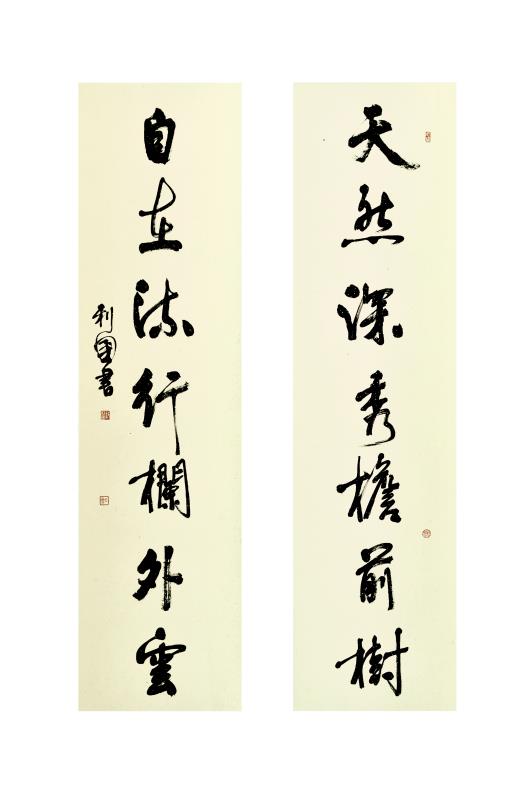 天然深秀檐前樹
自在流行欄外雲
利國書